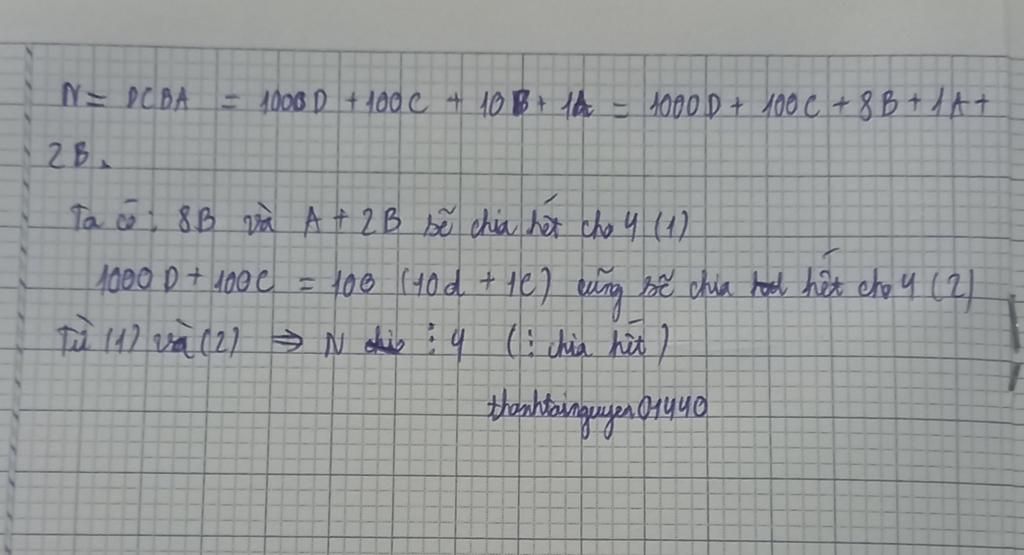 N = DCBA = 1000D + 100C + 10B + 1A = 1000D + 100C + 8B + 1A +
2B.
Ta có: 8B và A + 2B sẽ chia hết cho 4 (1)
1000D + 100C = 100 (10d + 1C) cũng sẽ chia hết cho 4 (2)
Từ (1) và (2) ⇒ N ⋮ 4 (⋮ chia hết)
thanhtainguyen01440